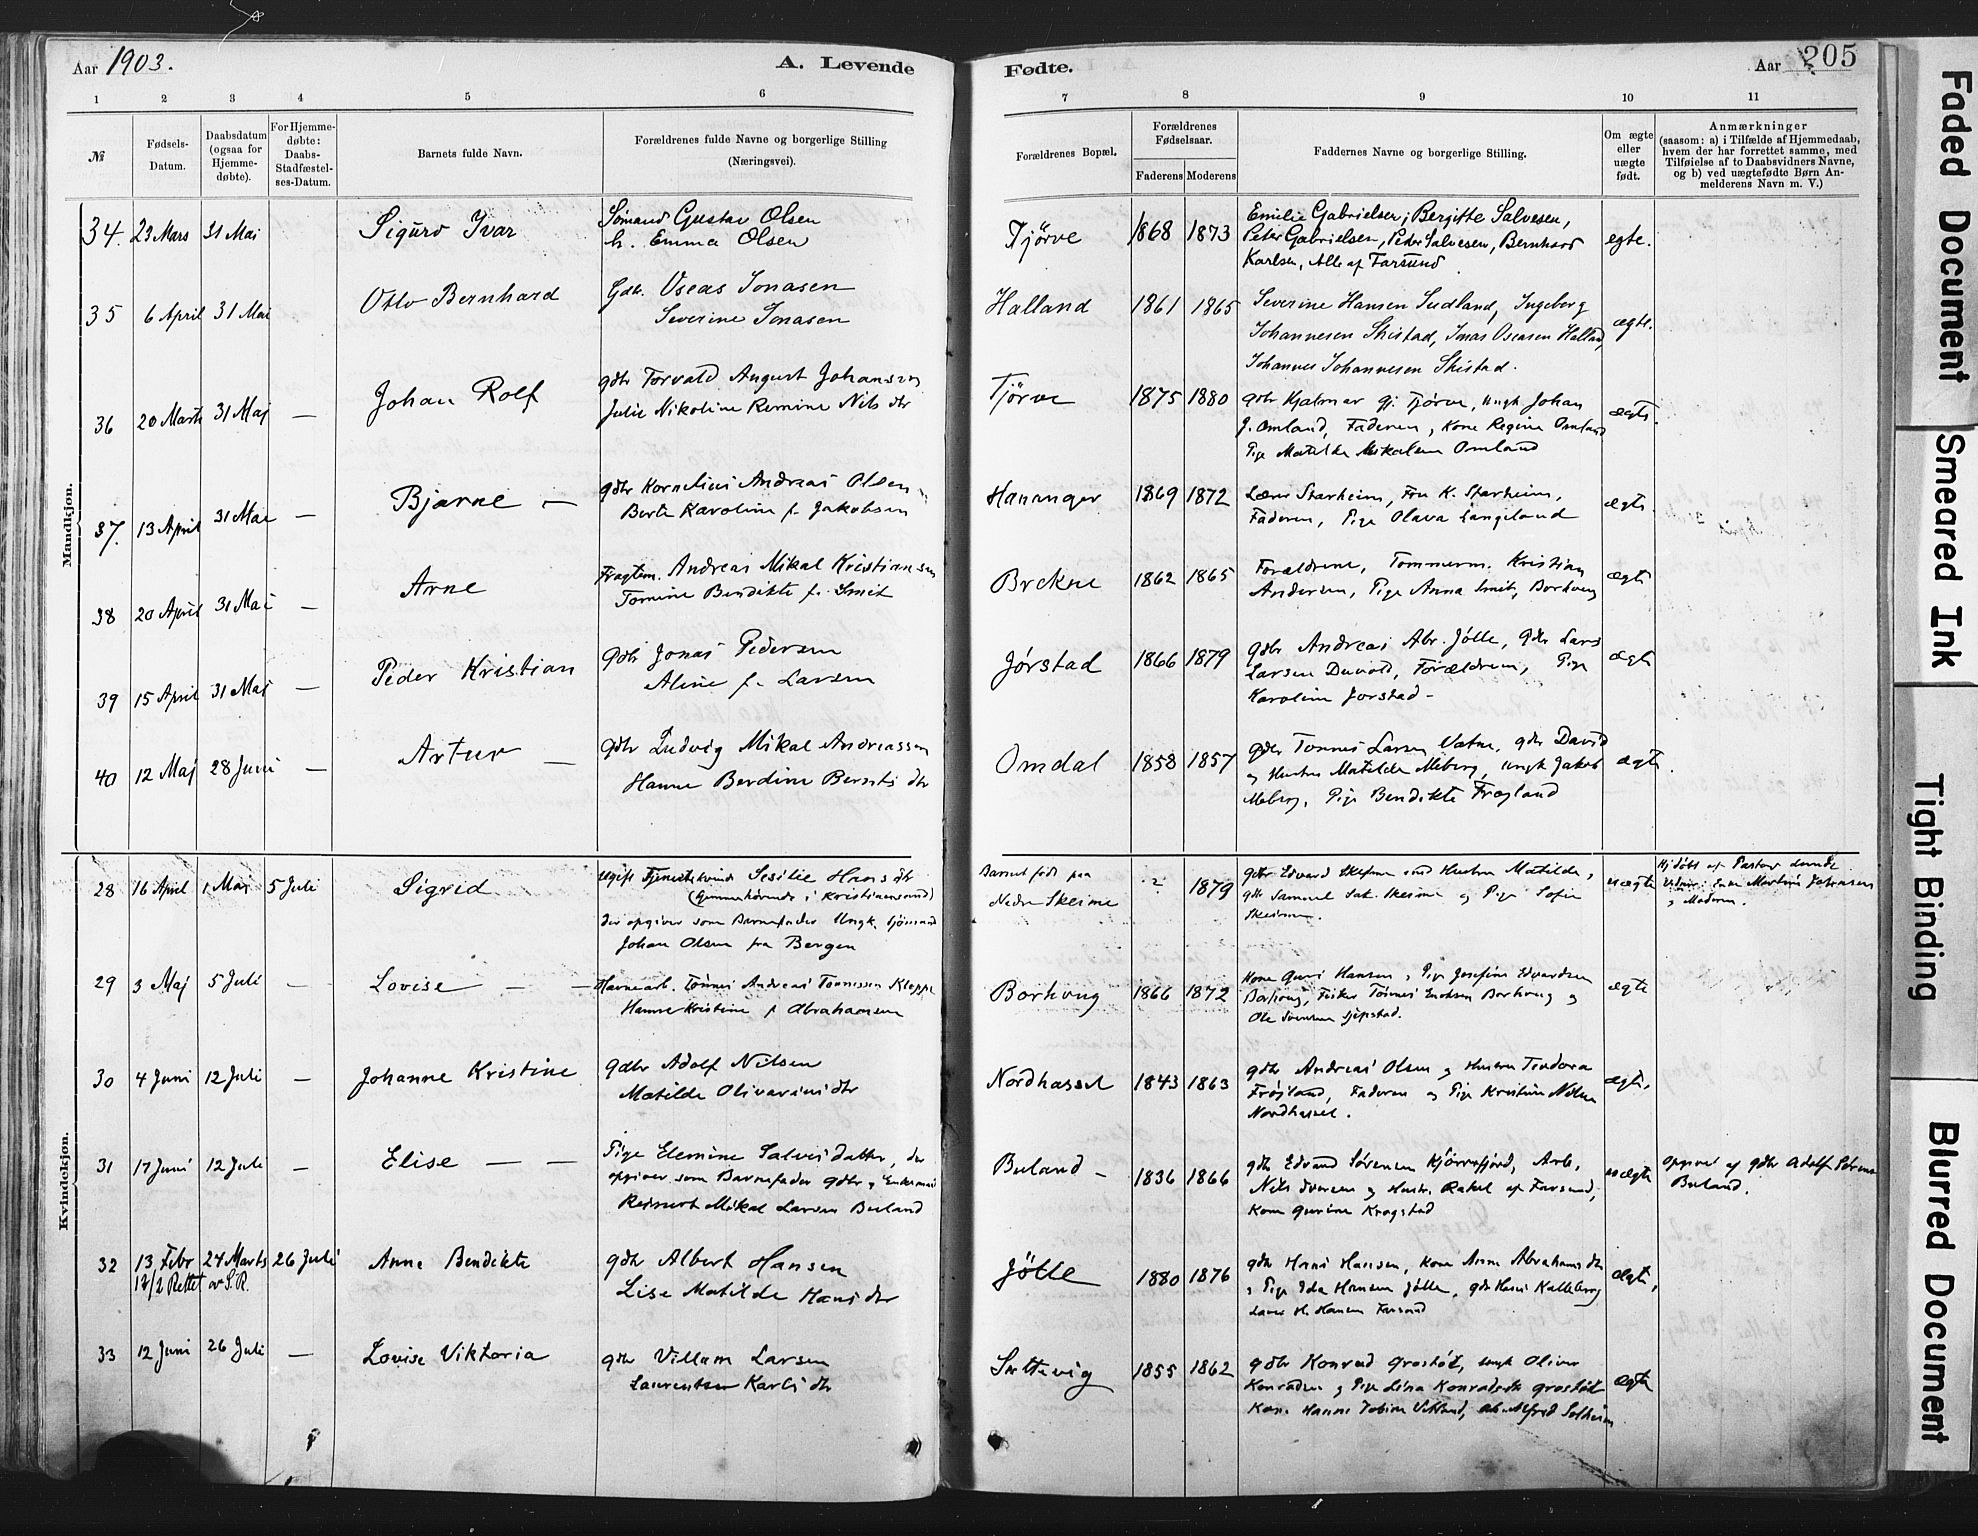 Aar 1903.
A. Levende
Fødte.
Aar
205
1 2 3 4 5 6
7 8 9 10 11
№
Fødsels-
Datum.
Daabsdatum
(ogsaa for
Hjemme-
døbte).
For Hjemme-
døbte:
Daabs-
Stadfæstel-
ses-Datum.
Barnets fulde Navn.
Forældrenes fulde Navne og borgerlige Stilling
(Næringsvei).
Forældrenes Bopæl.
Forældrenes
Fødselsaar.
Faderens Moderens
Faddernes Navne og borgerlige Stilling.
Om ægte
eller
uægte
født.
Anmærkninger
(saasom: a) i Tilfælde af Hjemmedaab,
hvem der har forrettet samme, med
Tilføielse af to Daabsvidners Navne,
og b) ved uægtefødte Børn An-
melderens Navn m. V.)
Mandkjøn.
34. 23 Mars 31 Mai
Sigurd Ivar
Sømand Gustav Olsen
h. Emma Olsen
Tjörve 1868 1873
Emilie Gabrielsen, Bergitte Salvesen,
Peter Gabrielsen, Peder Salvesen, Bernhard
Karlsen, Alle af Farsund
egte.
35 6 April 31 Mai
Otto Bernhard
Gdb. Oseas Jonasen
Severine Jonasen
Halland 1861 1865
Severine Hansen Sudland, Ingeborg
Johannesen Skistad, Jonas Oseasen Halland,
Johannes Johannesen Skistad.
ægte.
36 20 Marts 31 Maj —
Johan Rolf
gdbr Torvald August Johansen
Julie Nikoline Remine Nils dtr
Tjörve 1875 1880
gdbr Hjalmar Gj. Tjörve, Ungk Johan
J. Omland, Faderen, Kone Regine Omland
Pige Matilde Mikalsen Omland
ægte.
37. 13 April 31 Mai —
Bjarne —
gdbr Kornelius Andreas Olsen
Berte Karoline f. Jakobsen
Hananger 1869 1872
Lærer Starheim, Fru K. Starheim,
Faderen, Pige Olava Langeland
ægte.
38 20 April 31 Mai —
Arne
Fragtem. Andreas Mikal Kristiansen
Tomine Bendikte f. Smit
Brekne 1862 1865
Forældrene, Tømmerm. Kristian
Andersen, Pige Anna Smit, Borhaug
ægte
39 15 April 31 Mai —
Peder Kristian
Gdbr Jonas Pedersen
Aline f. Larsen
Jørstad 1866 1879
gdbr Andreas Abr. Jölle, Gdbr Lars
Larsen, Forældrene, Pige
Karoline Jorstad -
ægte
40 12 Maj 28 Juni —
Artur —
gdbr Ludvig Mikal Andreassen
Hanne Berdine Bernts dtr
Omdal 1858 1857
gdbr Tønnes Larsen Vatne, gdbr David
og Hustru Matilde Meberg, Ungk Jakob
Meberg, Pige Bendikte Frøyland
ægte.
Kvindekjøn.
28 16 April 1 Maj 5 Juli
Sigrid
Ugift Tjenestekvinde Sesilie Hans dtr
(hjemmehørende i Kristianssand)
der opgiver som Barnefader Ungk. Sjömand
Johan Olsen fra Bergen
Barnet født paa
Nedre Skeime
? 1879
gdbr Edvard Skeime med Hustru Matilde,
gdbr Samuel Sal. Skeime og Pige Sofie
Skeime.
uægte
Hj døbt af Pastor
Vidner: Enke Martine Jakobsen
og Moderen.
29 3 Maj 5 Juli —
Lovise — —
Havnearb. Tönnes Andreas Tønnessen Kleppe
Hanne Kristine f Abrahamsen
Borhaug 1866 1872
Kone Guri Hansen, Pige Josefine Edvardsen
Borhaug, Fisker Tönnes Enoksen Borhaug og
Ole Svensen
ægte
30 4 Juni 12 Juli —
Johanne Kristine
gdbr Adolf Nilsen
Matilde Olivarius dtr
Nordhassel 1843 1863
gdbr Andreas Olsen og Hustru Teodora
Fröjland, Faderen og Pige Kristine Nilsen
Nordhassel.
ægte,
31 17 Juni 12 Juli —
Elise — —
Pige Elemine Salves datter, der
opgiver som Barnefader gdbr og Enkemand
Reinert Mikal Larsen Buland
Buland - 1836 1866
gdb Edvard Sørensen Kjörrefjord, Arb.
Nils Iversen og Hustr. Rakel af Farsund,
Kone Gurine Kragstad
uægte
Opgivet af gdbr Adolf
Buland.
32 13. Febr 24 Marts 26 Juli
17/2 Rettet av S.R.
Anne Bendikte
gdbr Albert Hansen
Lise Matilde Hans dtr
Jölle 1880 1876
gdb Hans Hansen, Kone Anne Abrahams dtr
, Pige Ida Hansen Jölle, gdb Hans Kalleberg
H. Hansen Farsund
ægte,
33 12 Juni 26 Juli —
Lovise Viktoria
gdbr Villum Larsen
Laurentse Karls dtr
1855 1862
gdbr Konrad Grostöl, Ungk Oliver
Konradsen og Pige Lina Konradsdtr Grostöl
Kone Hanne Tobine Vatland, Alfred Solheim
ægte
Faded Document
Smeared Ink
Tight Binding
Blurred Document